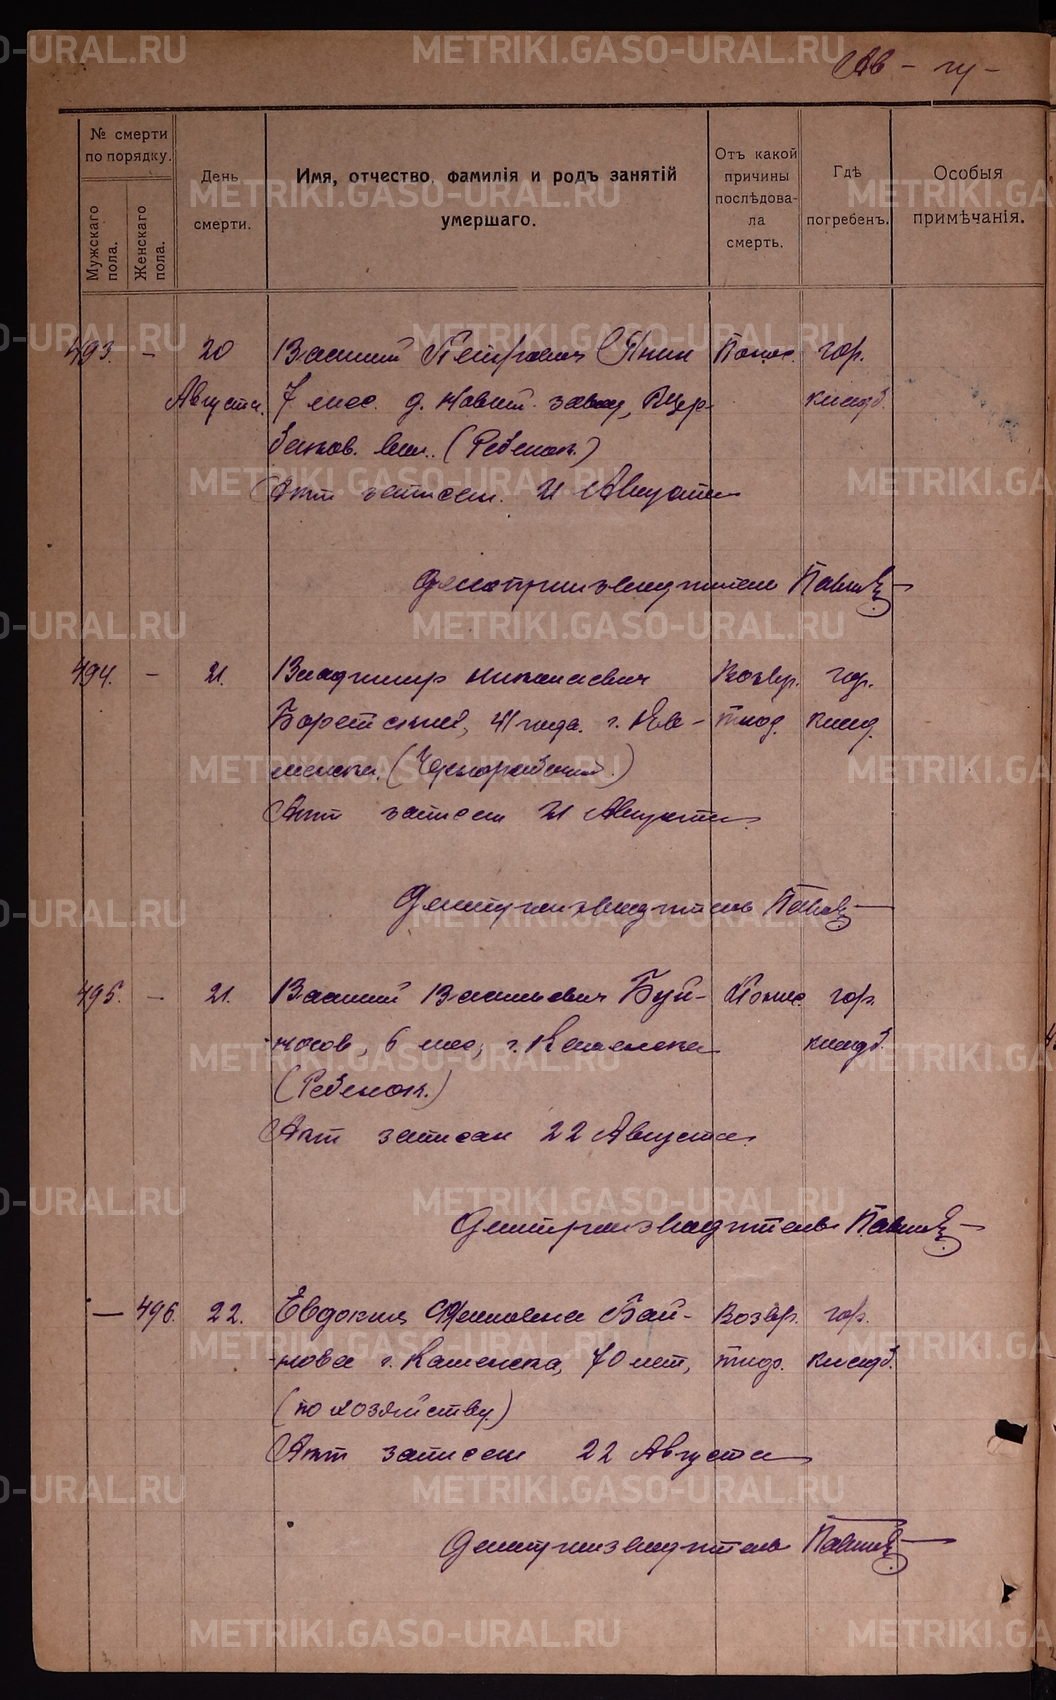 Ав - гу -
№ смерти по порядку.
Мужскаго пола.
Женскаго пола.
День смерти.
Имя, отчество, фамилія и родъ занятій умершаго.
Отъ какой причины послѣдовала смерть.
Гдѣ погребенъ.
Особыя примѣчанія.
493. - 20 Василий Петрович Понос. гор.
Августа. 7 мес. д. завод, Щер- кладб.
баков. вол. (Ребенок.)
Акт записан. 21 Августа
Делопроизводитель
494. - 21. Владимир Николаевич Возвр. гор.
Боретский, 41 года. г. Ка- тиф. клад.
менска. (Чернорабочий.)
Акт записан 21 Августа
Делопроизводитель
495. - 21. Василий Васильевич Буй- Понос гор.
носов, 6 мес, г. Каменска кладб.
(Ребенок.)
Акт записан 22 Августа.
Делопроизводитель
— 496. 22. Евдокия Бай- Возвр. гор.
нова г. Каменска, 70 лет, тиф. кладб.
(по хозяйству)
Акт записан 22 Августа
Делопроизводитель
METRIKI.GASO-URAL.RU